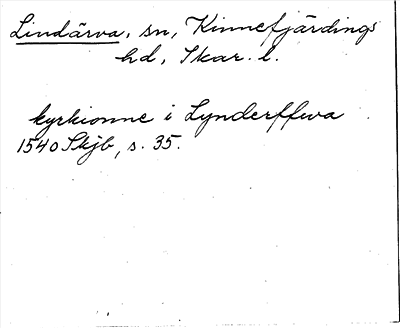 Lindärva, sn, Kinnefjärdings
hd, Skar. l.
kyrkionne i Lynderffwa
1540 Skjb, s. 35.